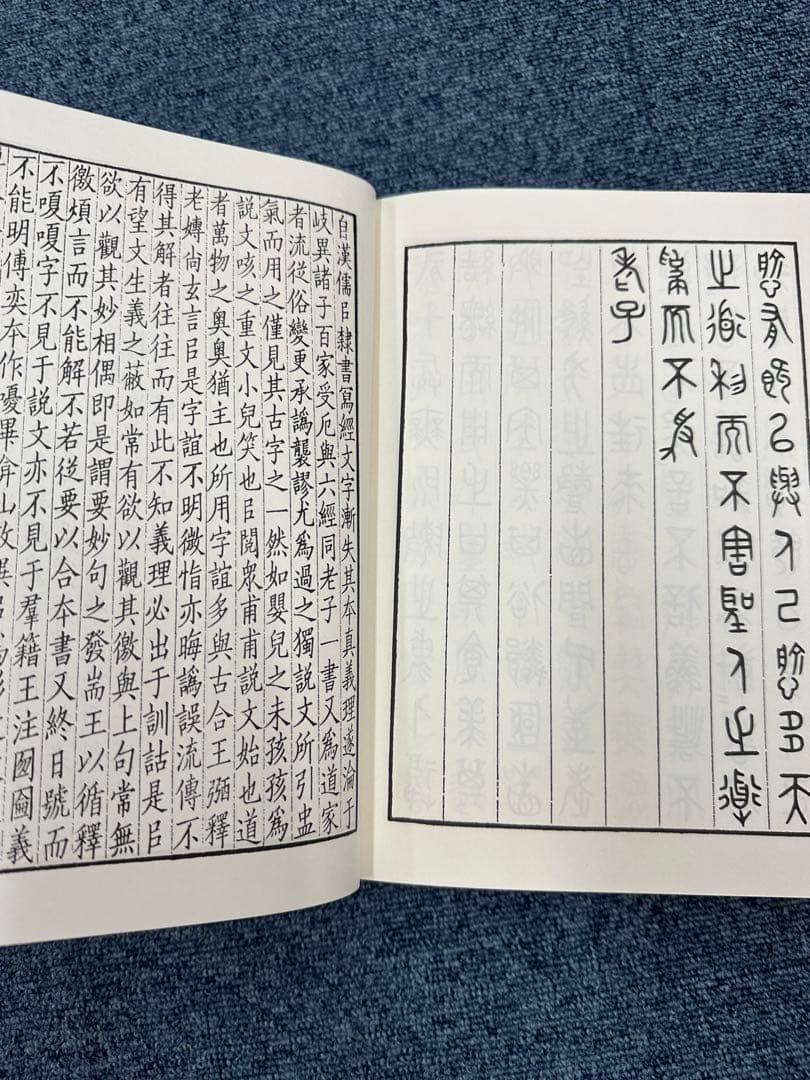 愈有既以與人己愈多天
之道利而不害聖人之道
爲而不爭
老子
自漢儒㠯隸書寫經文字漸失其本真義理遂淪于
岐異諸子百家受厄與六經同老子一書又爲道家
者流從俗變更承譌襲謬尤爲過之獨說文所引盅
氣而用之僅見其古字之一然如嬰兒之未孩孩爲
說文咳之重文小兒笑也㠯閱衆甫甫說文始也道
者萬物之奧奧猶主也所用字誼多與古合王弼釋
老嫥尚玄言㠯是字誼不明微恉亦晦譌誤流傳不
得其解者往往而有此不知義理必出于訓詁是㠯
有望文生義之蔽如常有欲以觀其徼與上句常無
欲以觀其妙相偶即是謂要妙句之發耑王以循釋
徼煩言而不能解不若從要以合本書又終日號而
不嗄嗄字不見于說文亦不見于羣籍王注圇義
不能明傅奕本作嚘畢弇山攷異